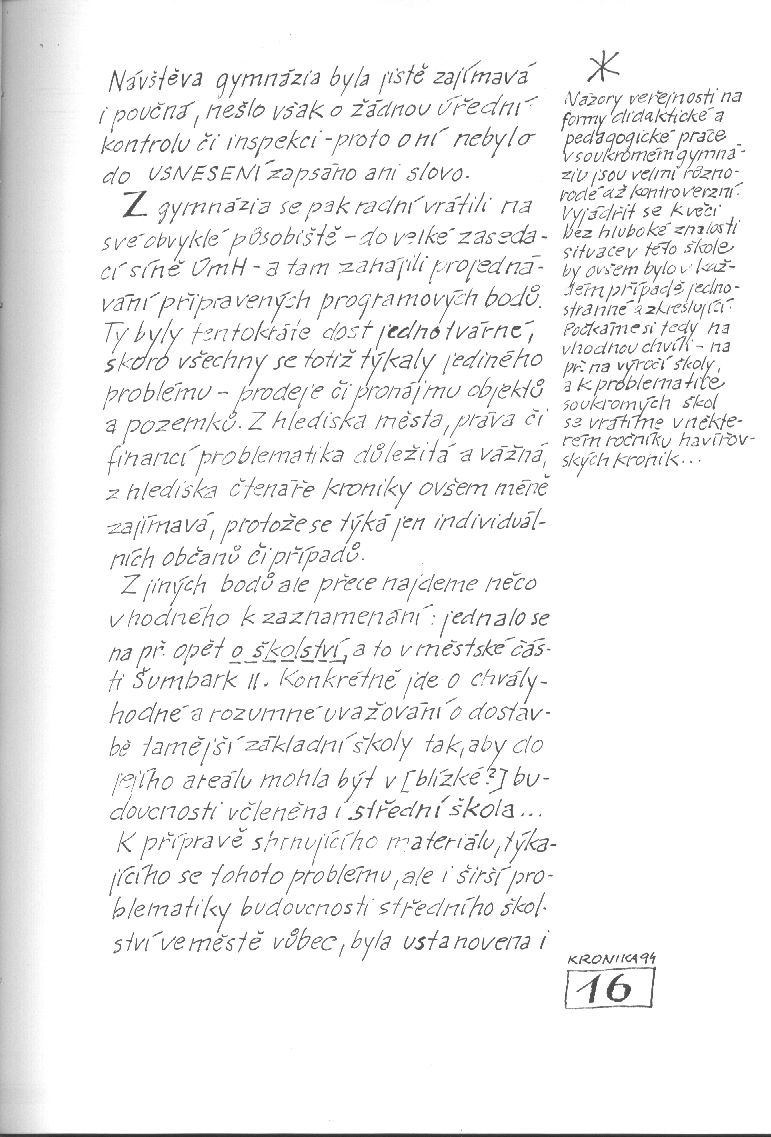 Návštěva gymnázia byla jistě zajímavá
i poučná, nešlo však o žádnou úřední
kontrolu či inspekci - proto o ní nebylo
do USNESENÍ zapsáno ani slovo.
Z gymnázia se pak radní vrátili na
své obvyklé působiště - do velké zaseda-
cí síně ÚmH - a tam zahájili projedná-
vání připravených programových bodů.
Ty byly tentokráte dost jednotvárné,
skoro všechny se totiž týkaly jediného
problému - prodeje či pronájmu objektů
a pozemků. Z hlediska města, práva či
financí problematika důležitá a vážná,
z hlediska čtenáře kroniky ovšem méně
zajímavá, protože se týká jen individuál-
ních občanů či případů.
Z jiných bodů ale přece najdeme něco
vhodného k zaznamenání: jednalo se
na př. opět o školství, a to v městské čás-
ti Šumbark II. Konkrétně jde o chvály-
hodné a rozumné uvažování o dostav-
bě tamější základní školy tak, aby do
jejího areálu mohla být v [blízké?] bu-
doucnosti včleněna i střední škola...
K přípravě shrnujícího materiálu, týka-
jícího se tohoto problému, ale i širší pro-
blematiky budoucnosti středního škol-
ství ve městě vůbec, byla ustanovena i
*
Názory veřejnosti na
formy didaktické a
pedagogické práce
v soukromém gymná-
ziu jsou velmi různo-
rodé až kontroverzní.
Vyjádřit se k věci
bez hluboké znalosti
situace v této škole
by ovšem bylo v kaž-
dém případě jedno-
stranné a zkreslující.
Počkáme si tedy na
vhodnou chvíli - na
př. na výročí školy,
a k problematice
soukromých škol
se vrátíme v někte-
rém ročníku havířov-
ských kronik...
KRONIKA 94
16